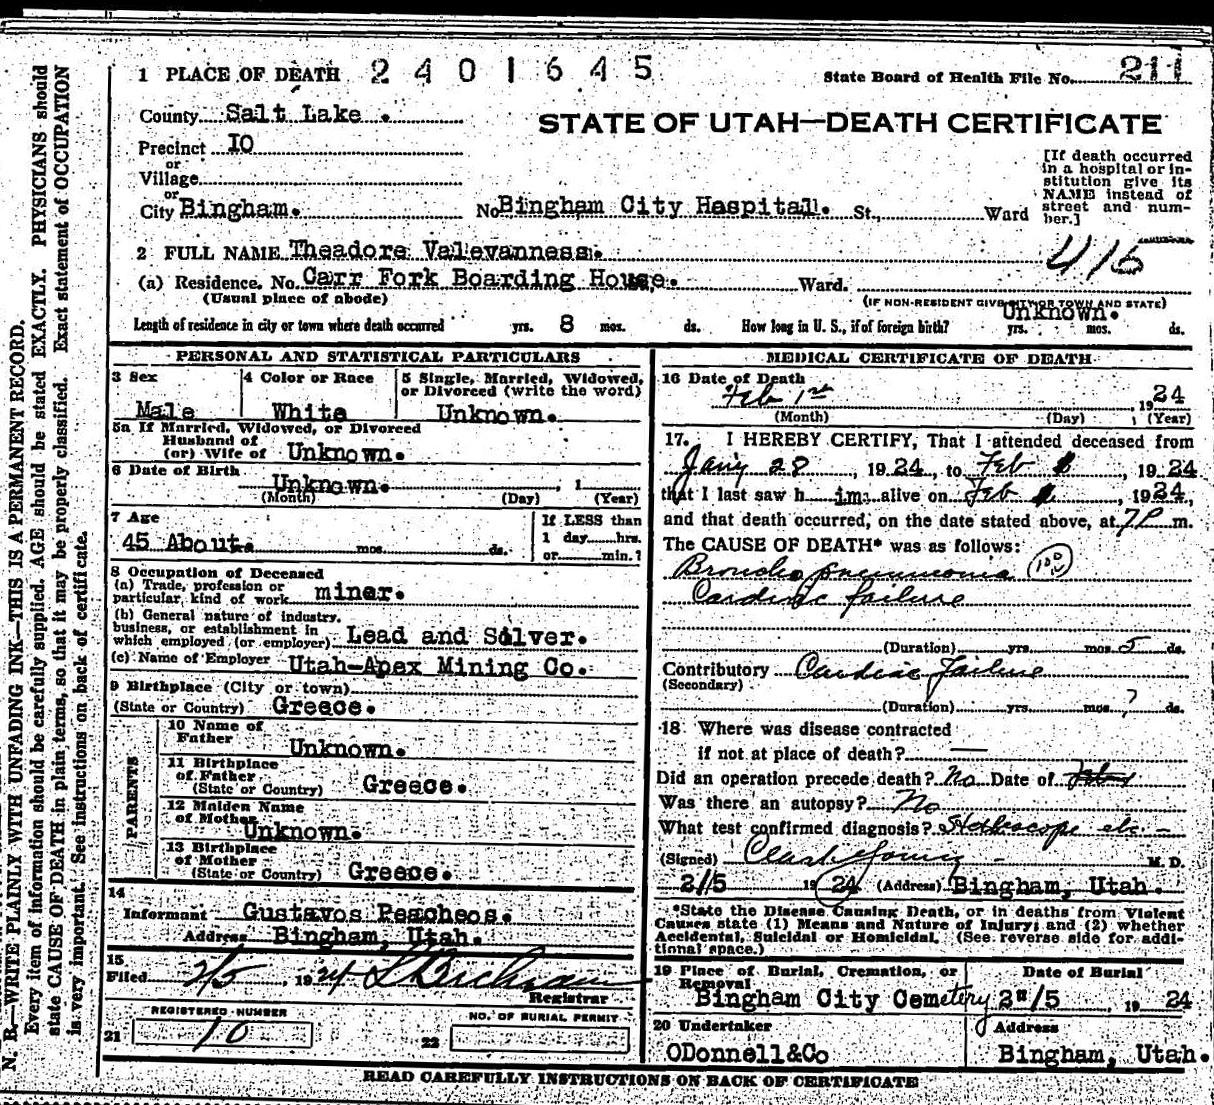 1 PLACE OF DEATH 2401645
State Board of Health File No. 211
County Salt Lake .
STATE OF UTAH—DEATH CERTIFICATE
Precinct IO
or
Village
or
City Bingham. No Bingham City Haspitall. St., Ward
[If death occurred
in a hospital or in-
stitution give its
NAME instead of
street and num-
ber.]
2 FULL NAME Theadore Valevanness.
415
(a) Residence. No. Carr Fork Boarding House. Ward.
(Usual place of abode)
(IF NON-RESIDENT GIVE CITY OR TOWN AND STATE)
Length of residence in city or town where death occurred yrs. 8 mos. ds. How long in U. S., if of foreign birth? Unknown. yrs. mos. ds.
PERSONAL AND STATISTICAL PARTICULARS
3 Sex
Male
4 Color or Race
White
5 Single, Married, Widowed,
or Divorced (write the word)
Unknown.
5a If Married, Widowed, or Divorced
Husband of
(or) Wife of Unknown.
6 Date of Birth
Unknown. , 1
(Month) (Day) (Year)
7 Age
45 About. mos. ds.
If LESS than
1 day hrs.
or min.?
8 Occupation of Deceased
(a) Trade, profession or
particular, kind of work miner.
(b) General nature of industry,
business, or establishment in
which employed (or employer) Lead and Silver.
(c) Name of Employer Utah-Apex Mining Co.
9 Birthplace (City or town)
(State or Country) Greece.
PARENTS
10 Name of
Father Unknown.
11 Birthplace
of Father
(State or Country) Greece.
12 Maiden Name
of Mother Unknown.
13 Birthplace
of Mother
(State or Country) Greece.
14
Informant Gustavos Peacheos.
Address, Bingham, Utah.
15
Filed 2/5, 1924
Registrar
REGISTERED NUMBER
21 10
NO. OF BURIAL PERMIT
22
MEDICAL CERTIFICATE OF DEATH
16 Date of Death
Feb 1st , 1924
(Month) (Day) (Year)
17. I HEREBY CERTIFY, That I attended deceased from
Jany 28, 1924, to Feb , 1924
that I last saw h im alive on Feb , 1924,
and that death occurred, on the date stated above, at 7 P m.
The CAUSE OF DEATH* was as follows:
Broncho pneumonia
Cardiac failure
(Duration) yrs. mos. 5 ds.
Contributory Cardiac Failure
(Secondary)
(Duration) yrs. mos. ? ds.
18 Where was disease contracted
if not at place of death? —
Did an operation precede death? No Date of
Was there an autopsy? No
What test confirmed diagnosis? Stethoscope etc. —
(Signed) M. D.
2/5 1924 (Address) Bingham, Utah.
*State the Disease Causing Death, or in deaths from Violent
Causes state (1) Means and Nature of Injury; and (2) whether
Accidental, Suicidal or Homicidal. (See reverse side for addi-
tional space.)
19 Place of Burial, Cremation, or
Removal
Bingham City Cemetery
Date of Burial
2"/5 1924
20 Undertaker
ODonnell&Co
Address
Bingham, Utah.
READ CAREFULLY INSTRUCTIONS ON BACK OF CERTIFICATE
N. B.—WRITE PLAINLY WITH UNFADING INK—THIS IS A PERMANENT RECORD.
Every item of information should be carefully supplied. AGE should be stated EXACTLY. PHYSICIANS should
state CAUSE OF DEATH in plain terms, so that it may be properly classified. Exact statement of OCCUPATION
is very important. See instructions on back of certificate.